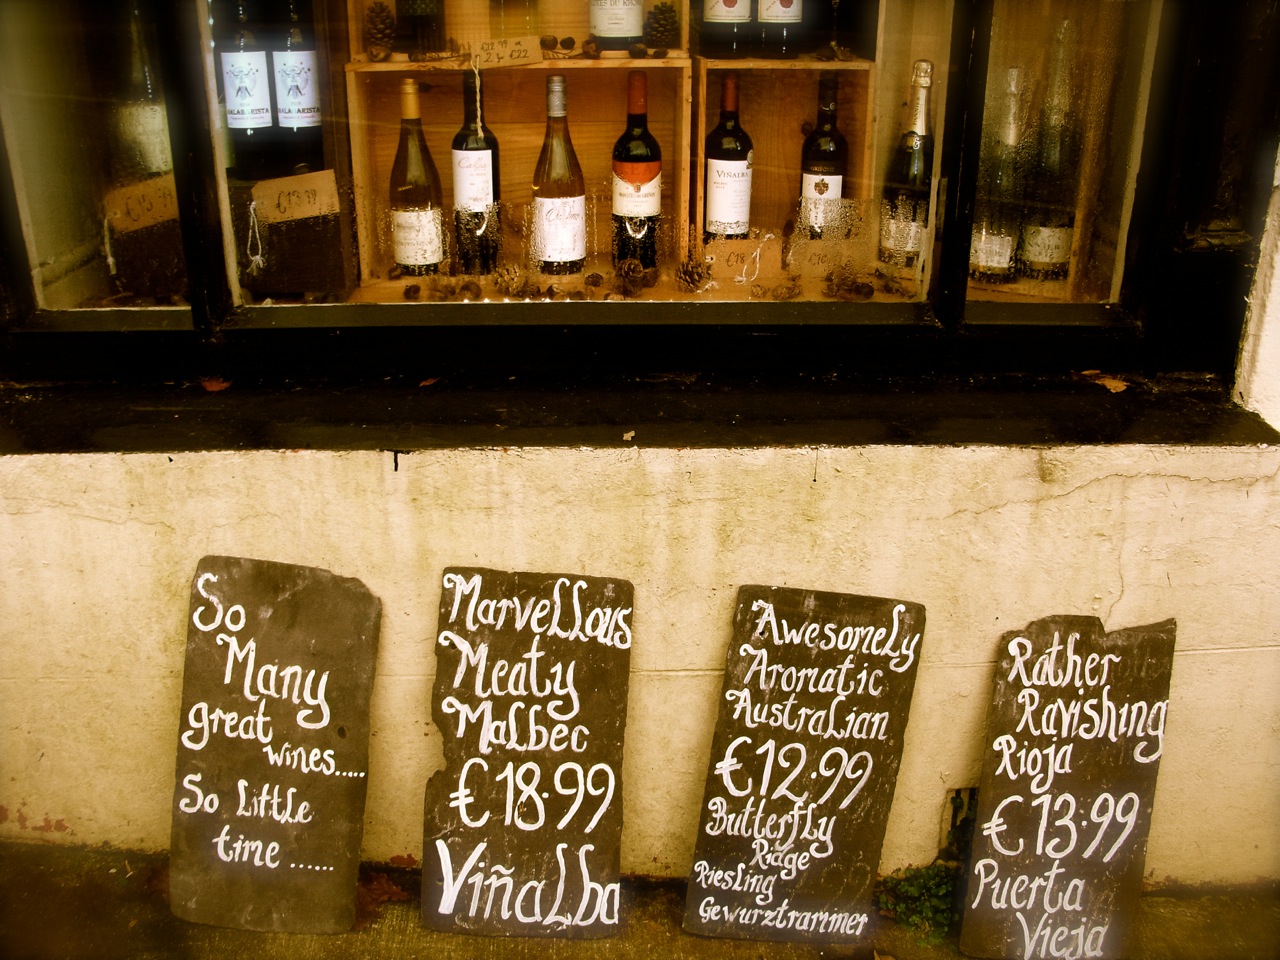 €22.99
2 for €22
MALABARISTA
MALABARISTA
€15.99
€13.99
VIÑALBA
€18
So
Many
great
wines.....
So Little
time ......
Marvellous
Meaty
Malbec
€18.99
Viñalba
Awesomely
Aromatic
Australian
€12.99
Butterfly
Ridge
Riesling
Gewurztraminer
Rather
Ravishing
Rioja
€13.99
Puerta
Vieja